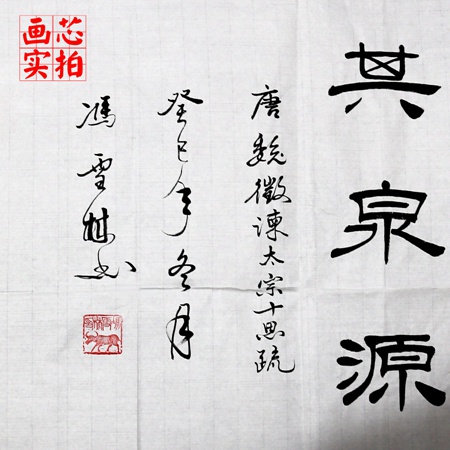 画芯
实拍
其泉源
唐魏徵諫太宗十思疏
癸巳年冬月
馮雪书